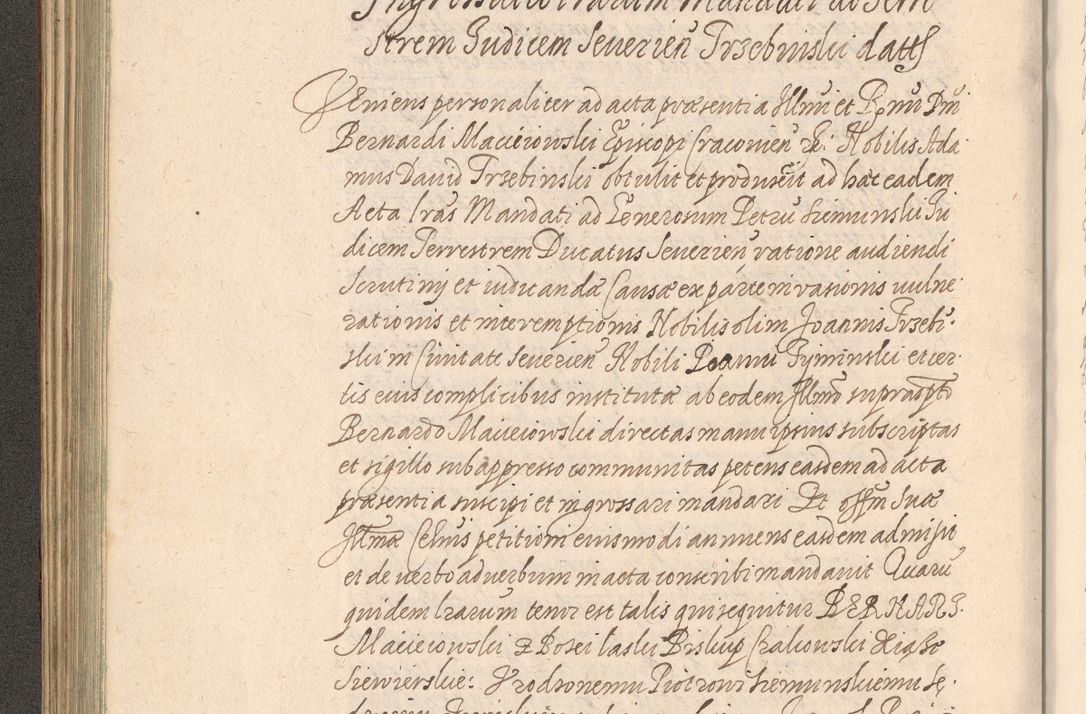 Ingrossatio lrarum Mandati ad Terre
strem Judicem Severien Trzebinski datt
Veniens personaliter ad acta præsentia Illmi et Rmi Dni
Bernardi Macieiowski Episcopi Cracovien &c. Nobilis Ada
mus Dauid Trzebinski obtulit et produxit ad hæc eadem
Acta lras Mandati ad Generosum Petru Siemunski Ju
dicem Terrestrem Ducatus Severien ratione audiendi
Scrutinij et iudicandæ Causæ ex parte invasionis vulne
rationis et interemptionis Nobilis olim Joannis Trzebi
ski in Civitate Severien Nobili Joanni Gyminski et cer
tis eius complicibus institutæ ab eodem Illmo suprascpto
Bernardo Macieiowski directas manu ipsius subscriptas
et sigillo subappresso communitas petens easdem ad acta
præsentia suscipi et ingrossari mandari Et offm Suæ
Illmæ Celnis petitioni eiusmodi annuens easdem admisit
et de verbo ad verbum in acta conscribi mandavit Quaru
quidem lrarum tenor est talis qui sequitur BERNART
Macieiowski z Bozei łaski Biskup Krakowski Xiąże
Siewierskie: Urodzonemu Piotrowi Siemunskiemu Sę